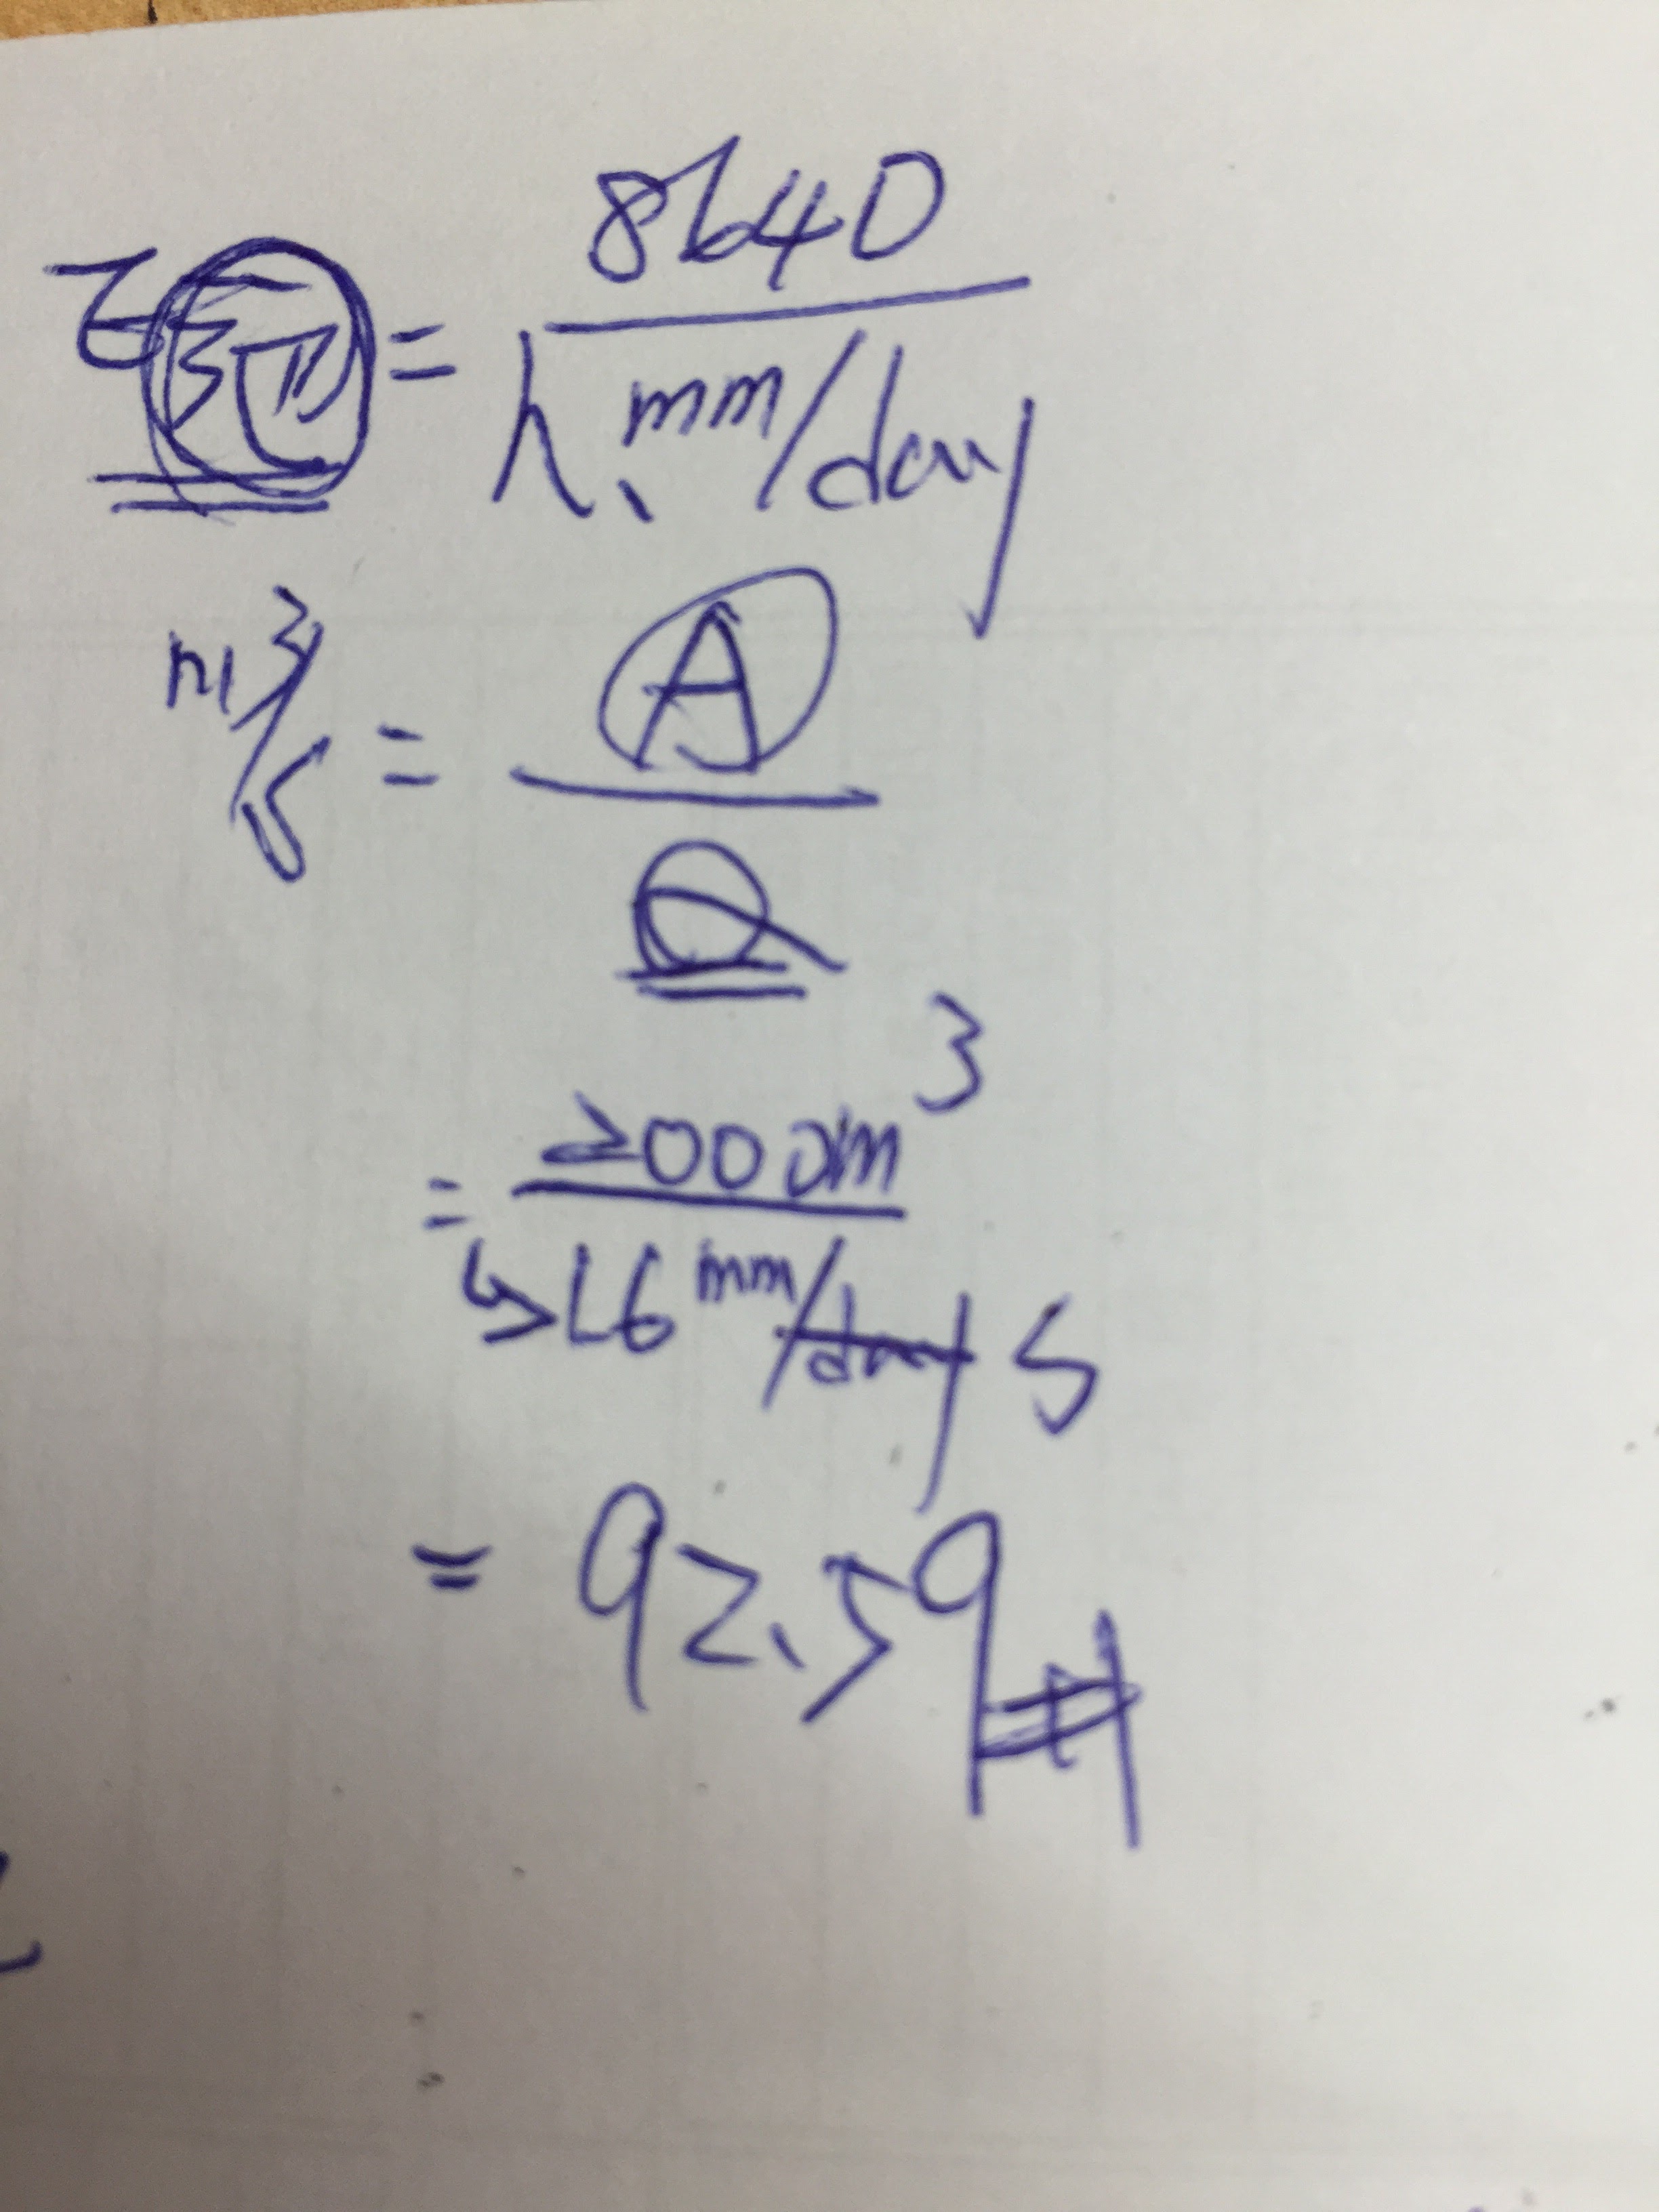 8640
= 
h mm/day
m³/s = A
Q
= 2000m³
21.6 mm/day s
= 92.59